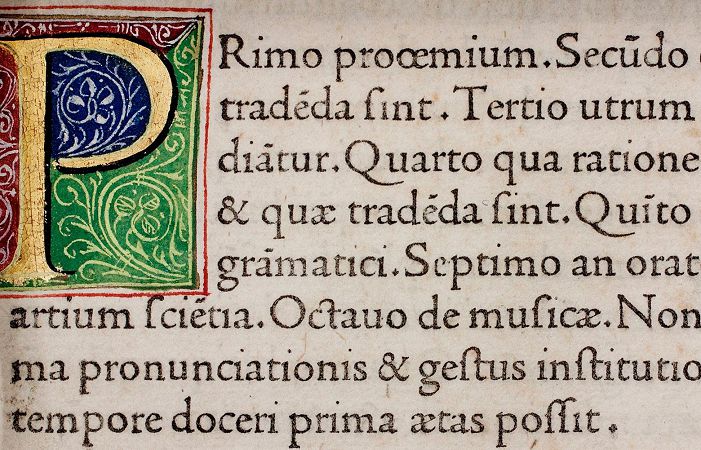 PRimo procœmium. Secūdo
tradēda ſint. Tertio utrum
diātur. Quarto qua ratione
& quæ tradēda ſint. Quīto
grāmatici. Septimo an orat
artium ſciētia. Octauo de muſicæ. Non
ma pronunciationis & geſtus inſtitutio
tempore doceri prima ætas poſſit.